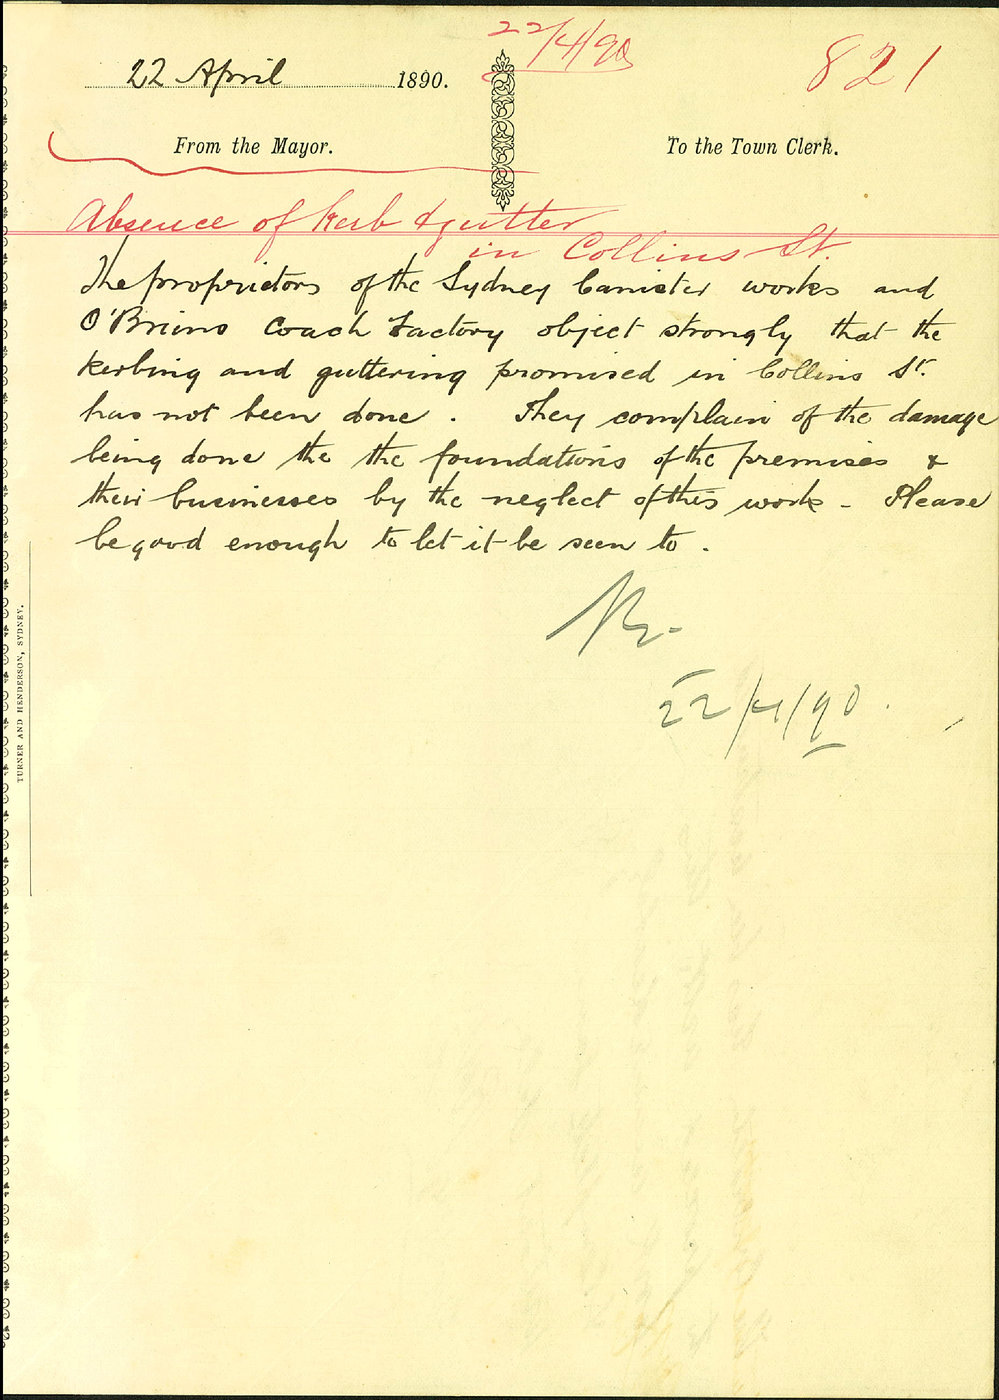 22/4/90
821
22 April 1890.
From the Mayor.
To the Town Clerk.
Absence of Kerb & gutter
in Collins St.
The proprietors of the Sydney Canister works and
O'Briens Coach Factory object strongly that the
Kerbing and guttering promised in Collins St.
has not been done. They complain of the damage
being done the the foundations of the premises &
their businesses by the neglect of this work - Please
be good enough to let it be seen to.
22/4/90.
TURNER AND HENDERSON, SYDNEY.